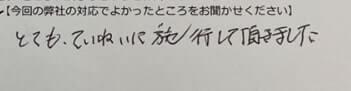 【今回の弊社の対応でよかったところをお聞かせください】
とても、ていねいに施行して頂きました